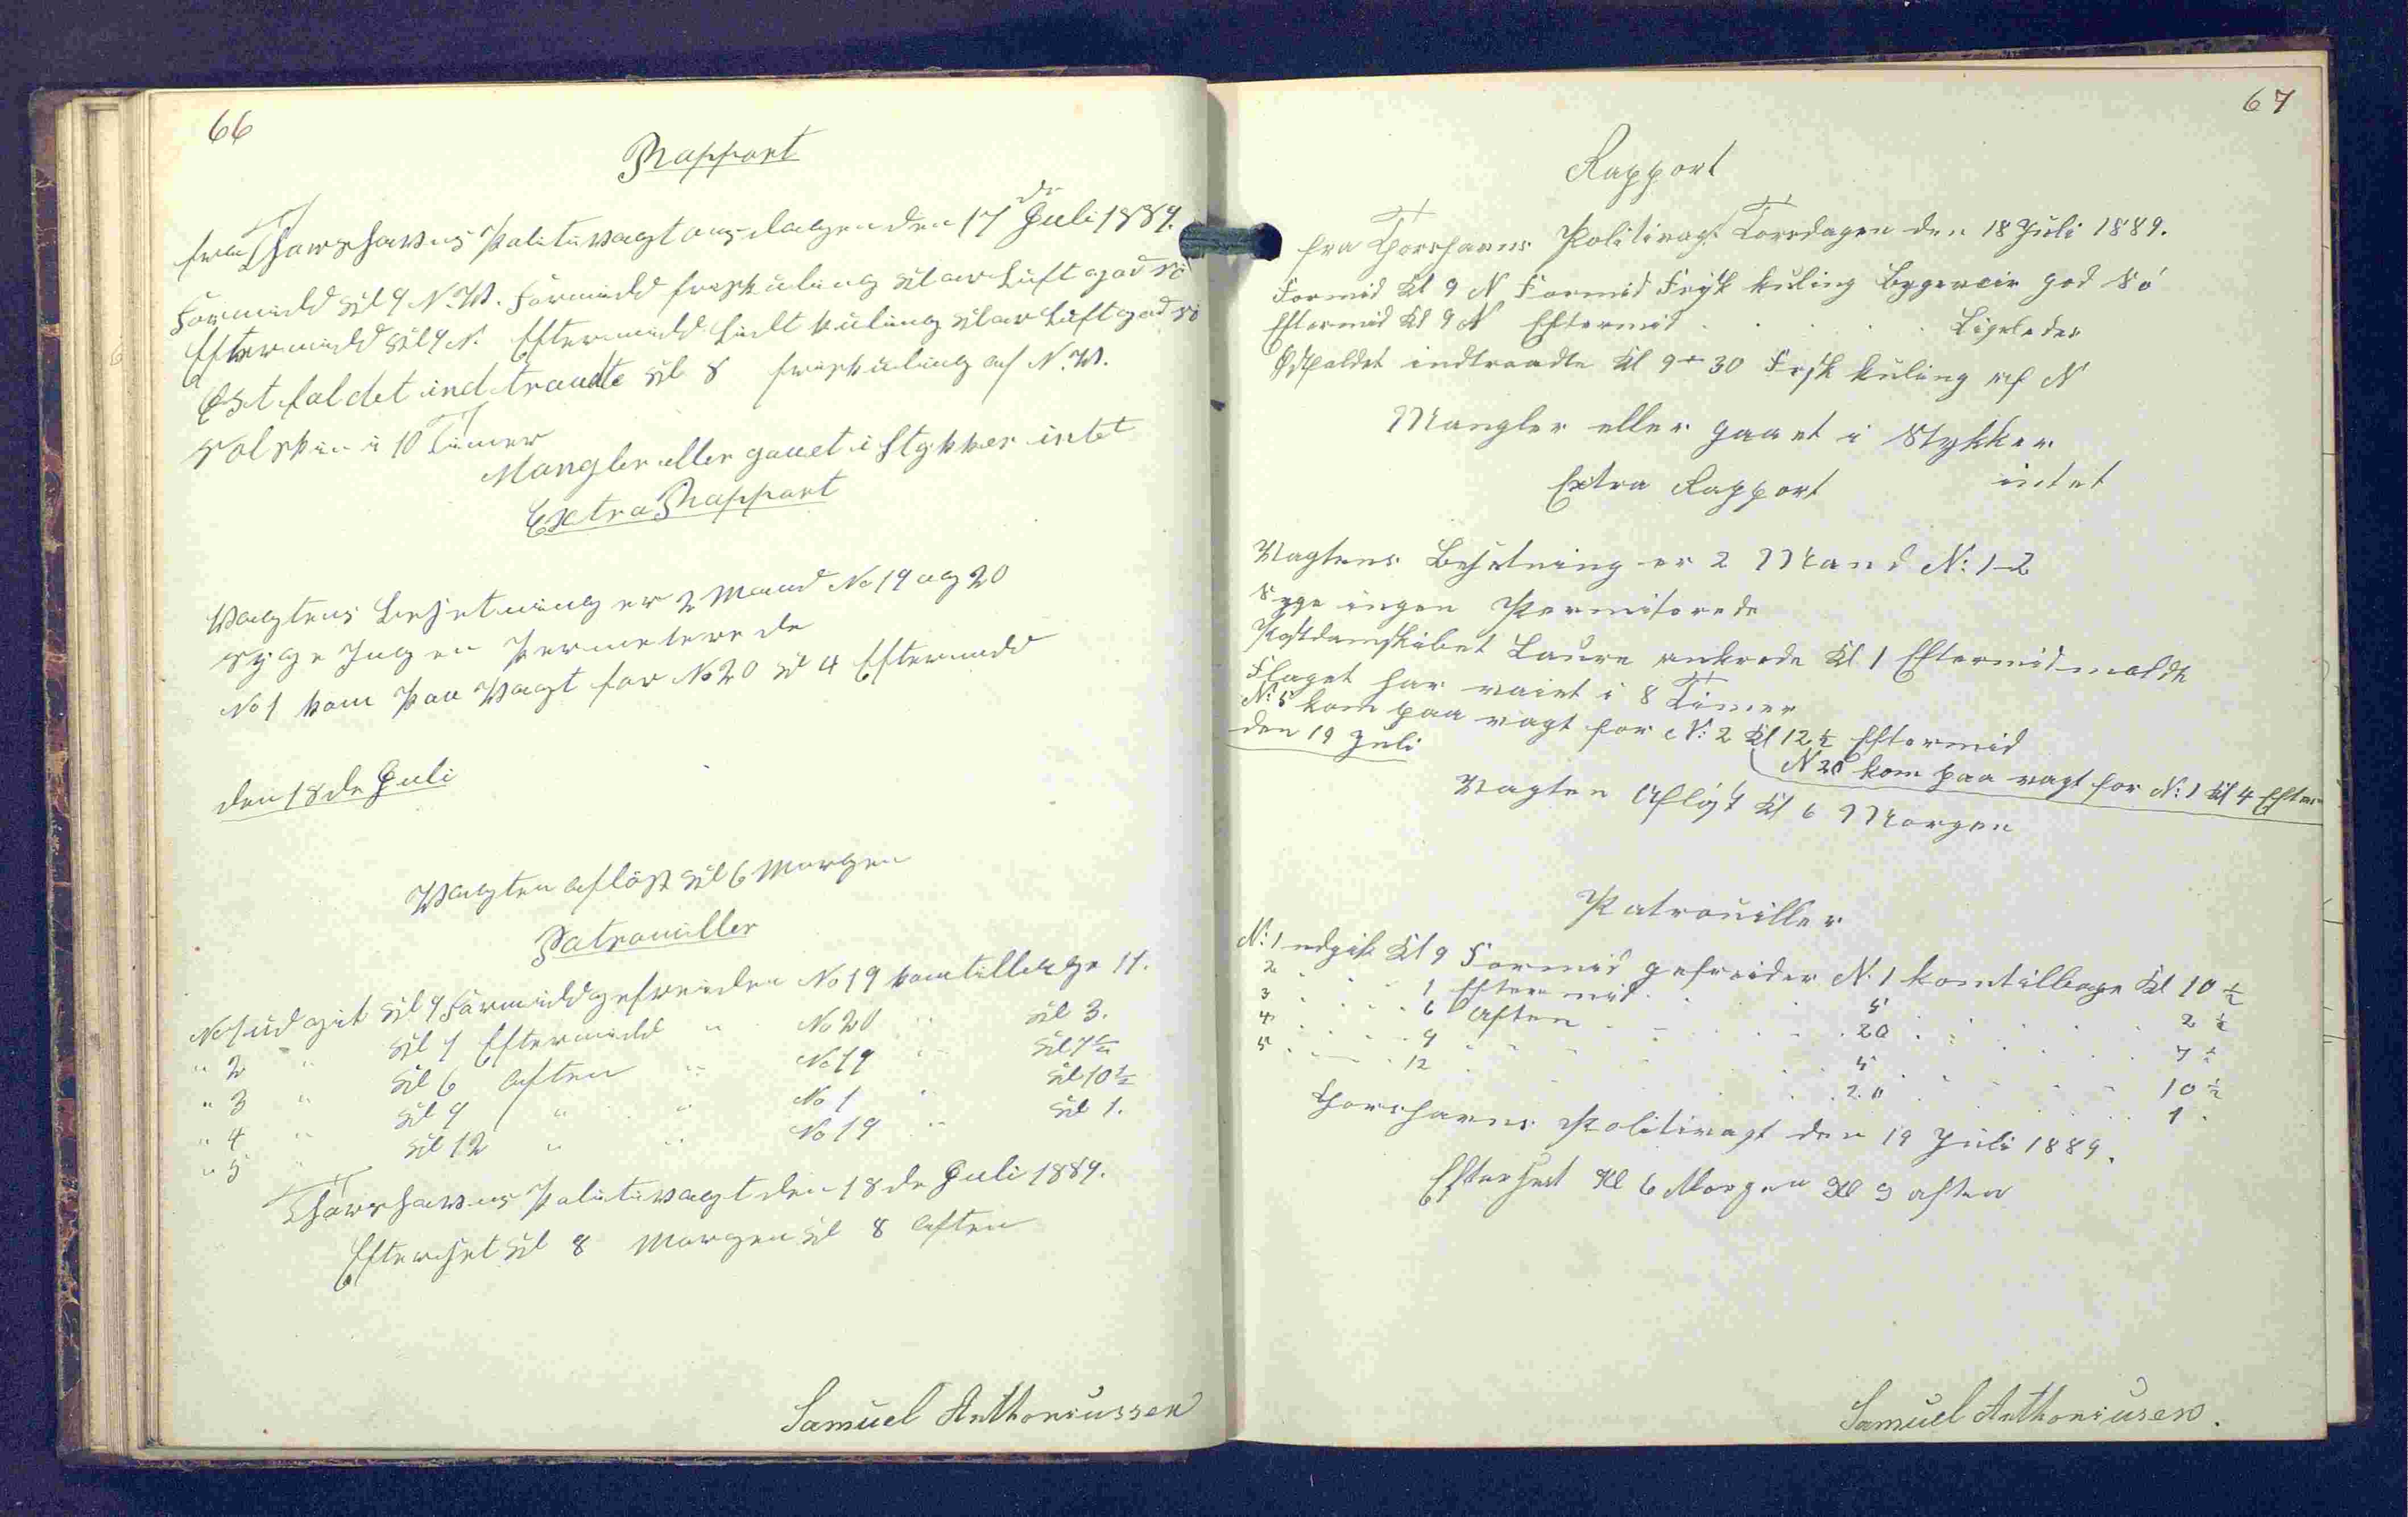 66
Rapport
fra Thorshavns Politivagt onsdagen den 17de Juli 1889.
Formidd Kl 9 N.W. Formidd friskkuling klar Luft god sö
Eftermidd Kl 9 N. Eftermidd lidt kuling klar Luft god sö
Østfaldet indtraadte Kl 8 friskkuling af N.W.
Solskin i 10 Timer
Mangler eller gaaet i Stykker intet
Extra Rapport
Vagtens Besetning er 2 Mand No 19 og 20
Syge Ingen Permeterede
No 1 kom Paa Vagt for No 20 Kl 4 Eftermidd
den 18de Juli
Vagten Aflöst Kl 6 Morgen
Patrouiller
No 1 udgik Kl 9 Formidd gefreiden No 19 kom tilbage 11.
" 2 " Kl 1 Eftermidd " No 20 " Kl 3.
" 3 " Kl 6 Aften " No 19 " Kl 7½
" 4 " Kl 9 " " No 1 " Kl 10½
" 5 " Kl 12 " " No 19 " Kl 1.
Thorshavns Politivagt den 18de Juli 1889.
Efterset Kl 8 Morgen Kl 8 Aften
Samuel Anthoniussen
67
Rapport
fra Thorshavns Politivagt Torsdagen den 18 Juli 1889.
Formid Kl 9 N Formid Frisk kuling Bygeveir god Sö
Eftermid Kl 9 N Eftermid . . . . . Ligeledes
Østfaldet indtraadte Kl 9 + 30 Frisk kuling af N
Mangler eller gaaet i Stykker
intet
Extra Rapport
Vagtens Besetning er 2 Mand N: 1-2
Syge ingen Permiterede
Postdamskibet Laura ankrede Kl 1 Eftermid
Flaget har vaiet i 8 Timer
N: 5 kom paa vagt for N: 2 Kl 12½ Eftermid
N 20 kom paa vagt for N: 1 Kl 4 Efter
den 19 Juli
Vagten Aflöst Kl 6 Morgen
Patrouiller
N: 1 udgik Kl 9 Formid gefreider N. 1 kom tilbage Kl 10½
2 . . . 1 Eftermid . . . 5 . . . 2½
3 . . . 6 Aften . . . 20 . . . 7½
4 . . . 9 . . . 5 . . . 10½
5 . . . 12 . . . 20 . . . 1.
Thorshavns Politivagt den 19 Juli 1889.
Efterset Kl 6 Morgen Kl 9 aften
Samuel Anthoniusen.